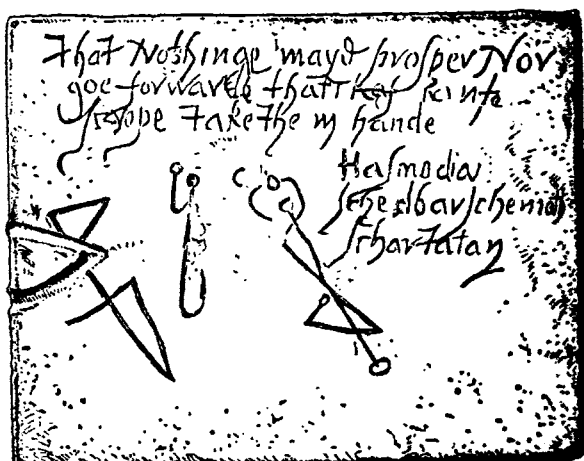 That Nothinge maye prosper Nor
goe forwarde that
take the in hande
Hasmodai
Schedbarschemoth
Schartatan